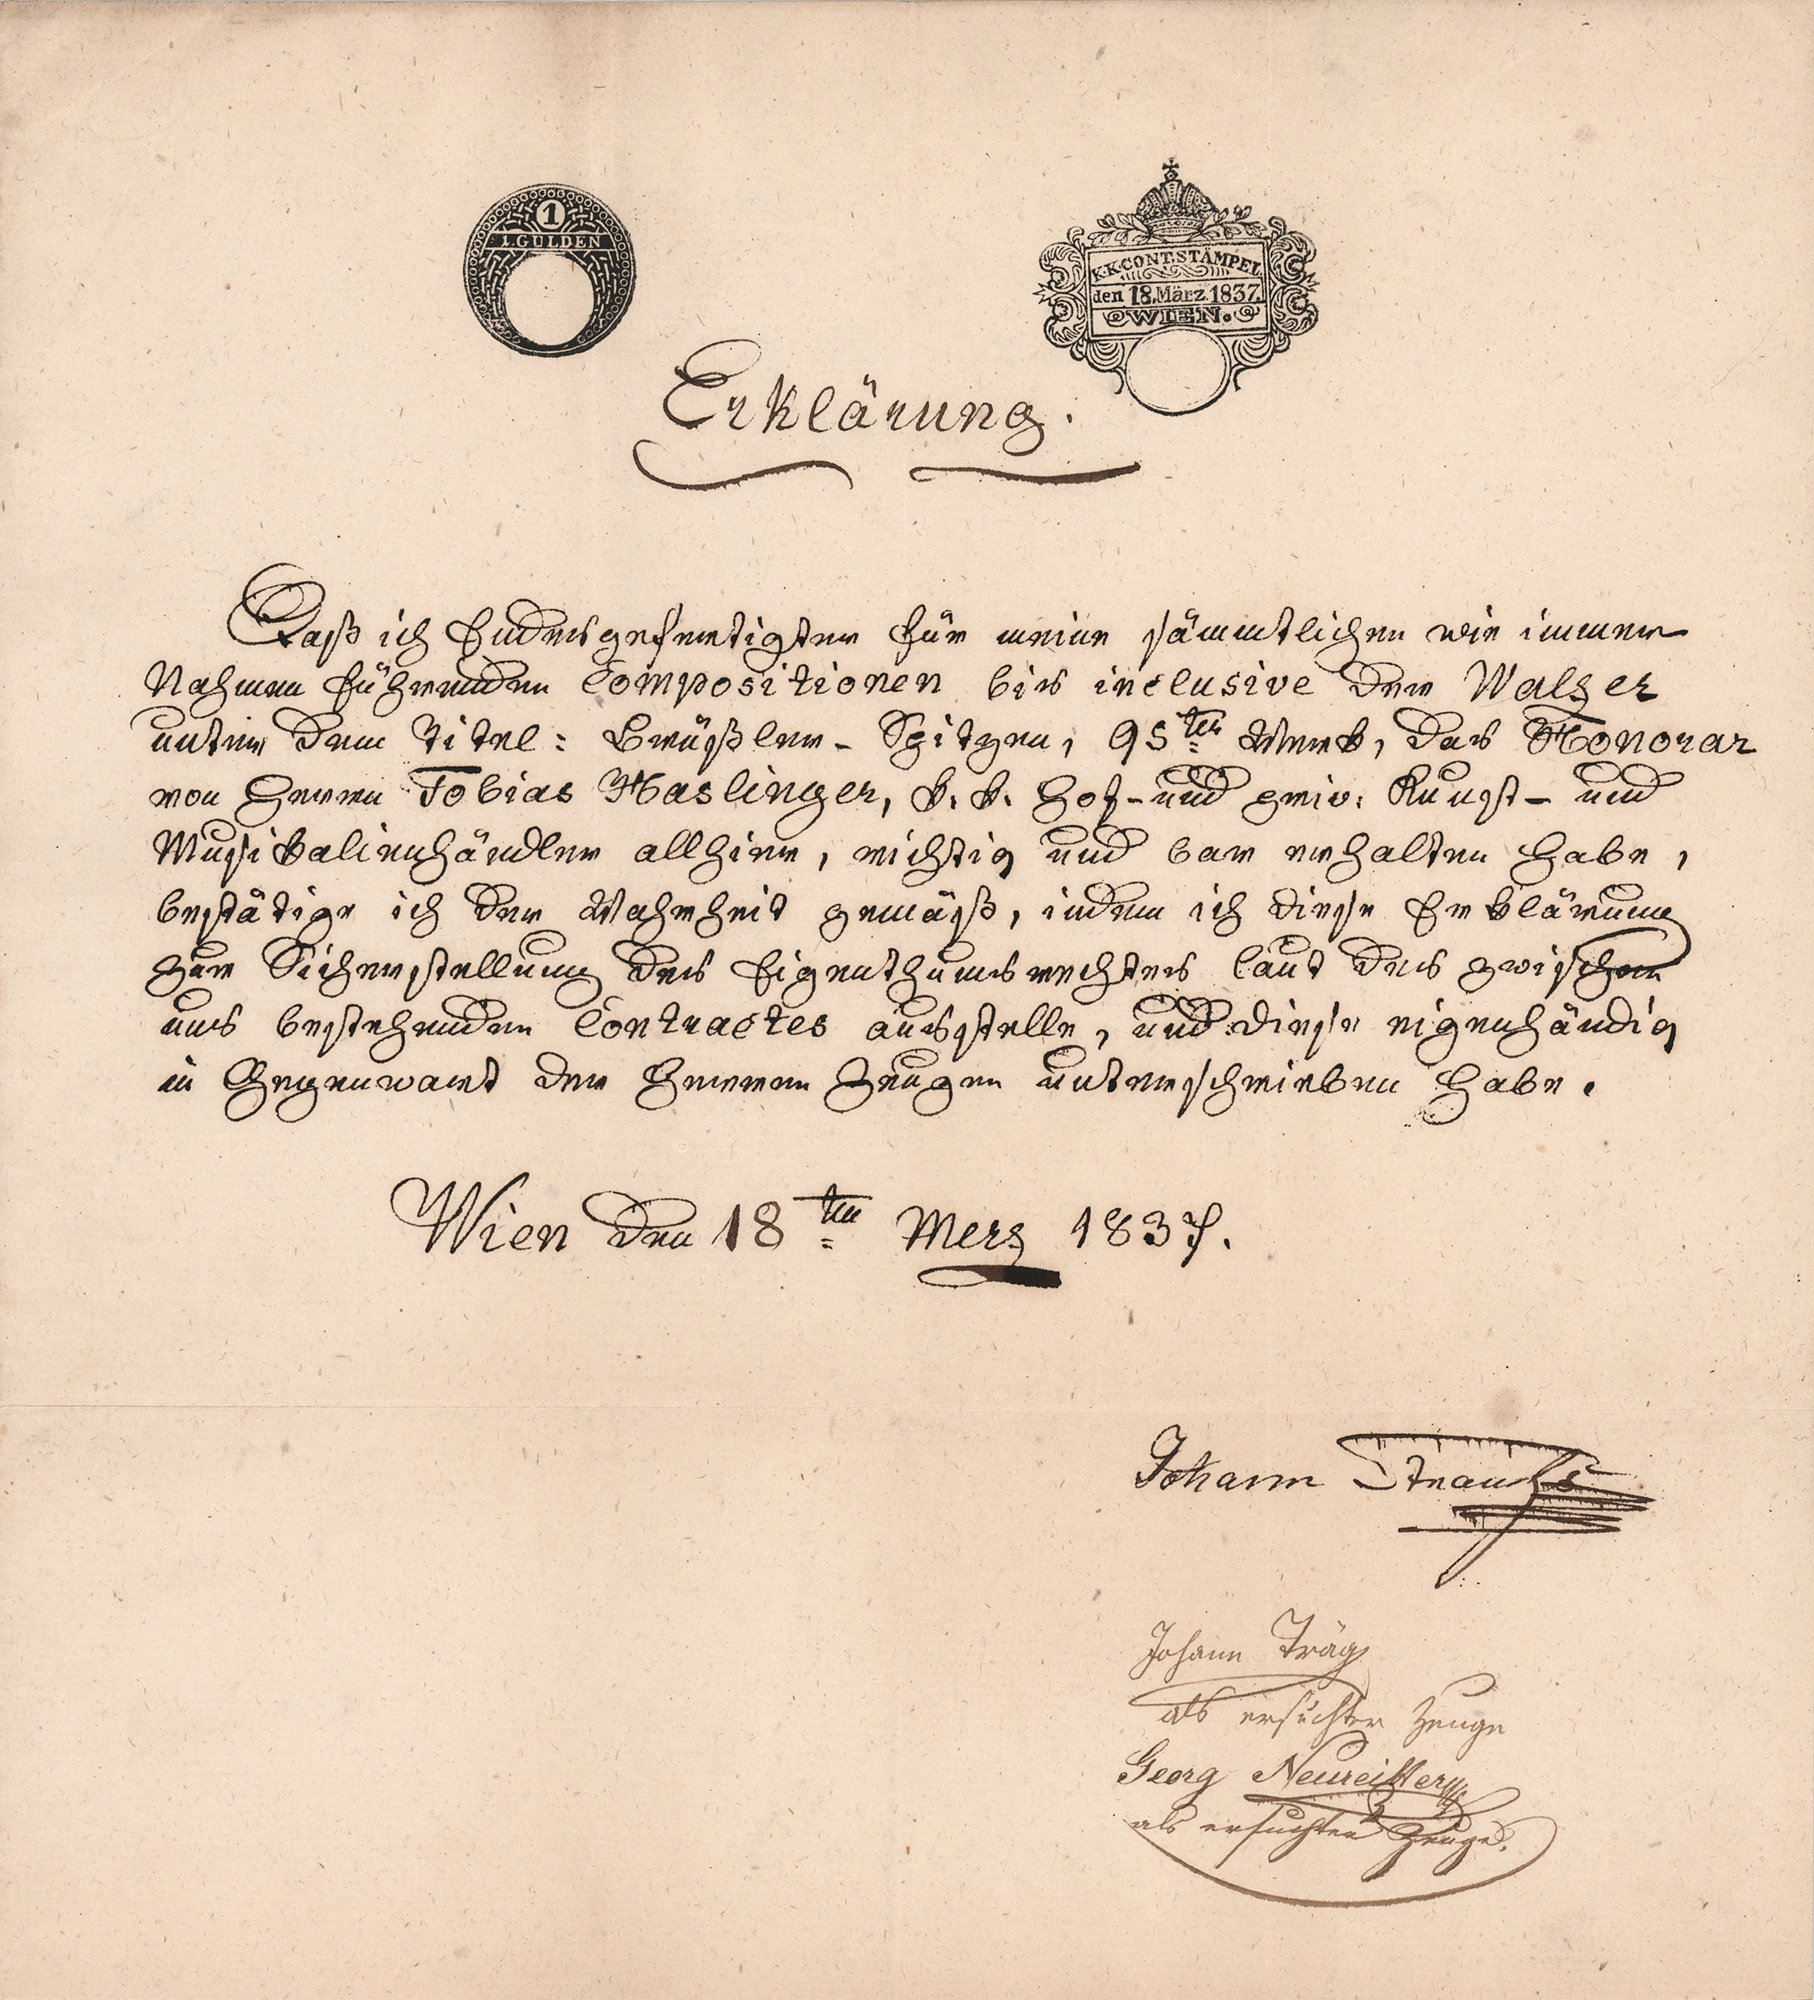 1
1.GULDEN
K.K.CONT.STÄMPEL
den 18.März.1837.
WIEN.
Erklärung.
Daß ich Endesgefertigter für meine sämmtlichen wie immer
Nahmen führenden Compositionen bis inclusive der Walzer
unter dem Titel: Brüßler-Spitzen, 95ten Werk, das Honorar
von Herrn Tobias Haslinger, k. k. Hof- und priv. Kunst- und
Musikalienhändler allhier, richtig und bar erhalten habe,
bestätige ich der Wahrheit gemäß, indem ich diese Erklärung
zur Sicherstellung des Eigenthumsrechtes laut des zwischen
uns bestehenden Contractes ausstelle, und diese eigenhändig
in Gegenwart der Herren Zeugen unterschrieben habe.
Wien den 18ten Merz 1837.
Johann Strauß
Johann Träg
als ersuchter Zeuge
Georg
als ersuchter Zeuge.